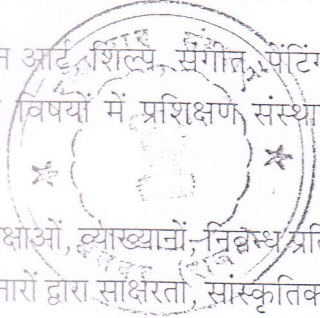 न आर्ट, शिल्प, संगीत, पेंटिंग
विषयों में प्रशिक्षण संस्था
क्षाओं, व्याख्यानों, निबन्ध प्रति
नारों द्वारा साक्षरता, सांस्कृतिक